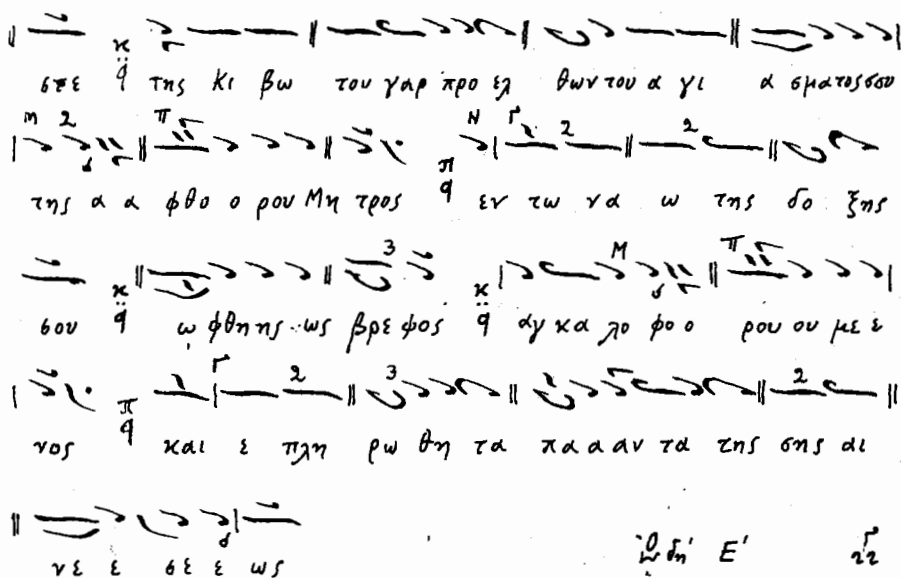 σπε της κι βω του γαρ προ ελ θων του α γι α σματος σου
της α α φθο ο ρου Μη τρος εν τω να ω της δο ξης
σου ω φθης ης ως βρε φος αγ κα λο φο ο ρου ου με ε
νος και ε πλη ρω θη τα πα α αν τα της σης αι
νε ε σε ε ως
ᾨδη' Ε'